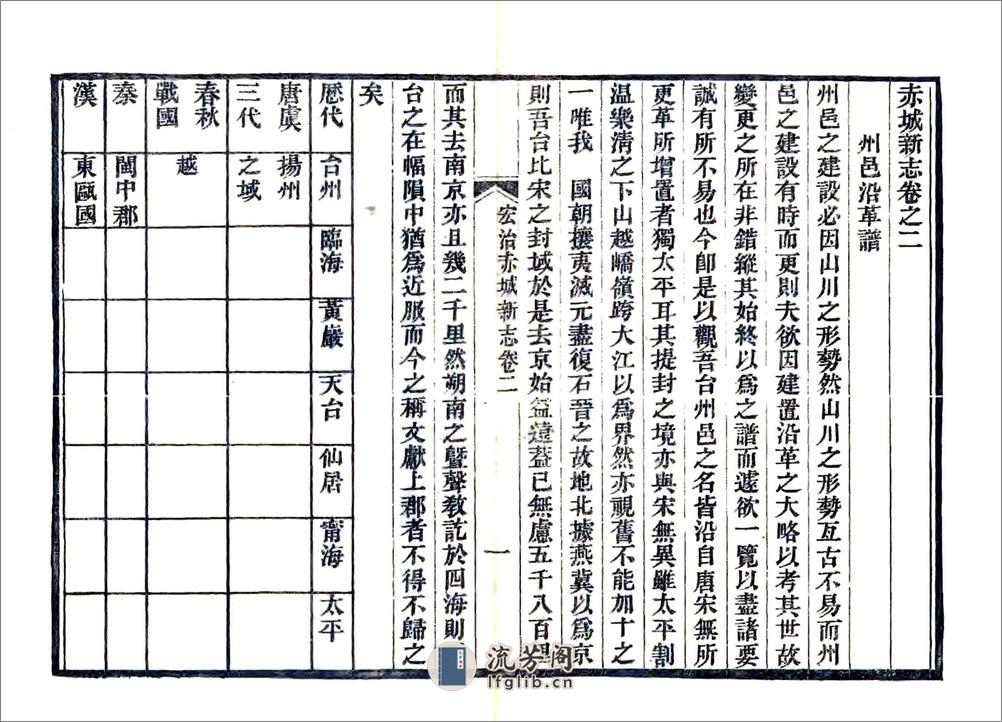 赤城新志卷之二
州邑沿革譜
州邑之建設必因山川之形勢然山川之形勢亙古不易而州
邑之建設有時而更則夫欲因建置沿革之大略以考其世故
變更之所在非錯縱其始終以為之譜而遽欲一覽以盡諸要
誠有所不易也今卽是以觀吾台州邑之名皆沿自唐宋無所
更革所增置者獨太平耳其提封之境亦與宋無異雖太平割
温樂清之下山越嶠嶺跨大江以為界然亦視舊不能加十之
一唯我 國朝攘夷滅元盡復石晉之故地北據燕冀以為京
則吾台比宋之封域於是去京始益遠葢已無慮五千八百里
宏治赤城新志卷二
一
而其去南京亦且幾二千里然朔南之曁聲敎訖於四海則
台之在幅隕中猶為近服而今之稱文獻上郡者不得不歸之
矣
歷代 台州 臨海 黃巖 天台 仙居 甯海 太平
唐虞 揚州
三代 之域
春秋
戰國 越
秦 閩中郡
漢 東甌國
流芳阁
lfglib.cn